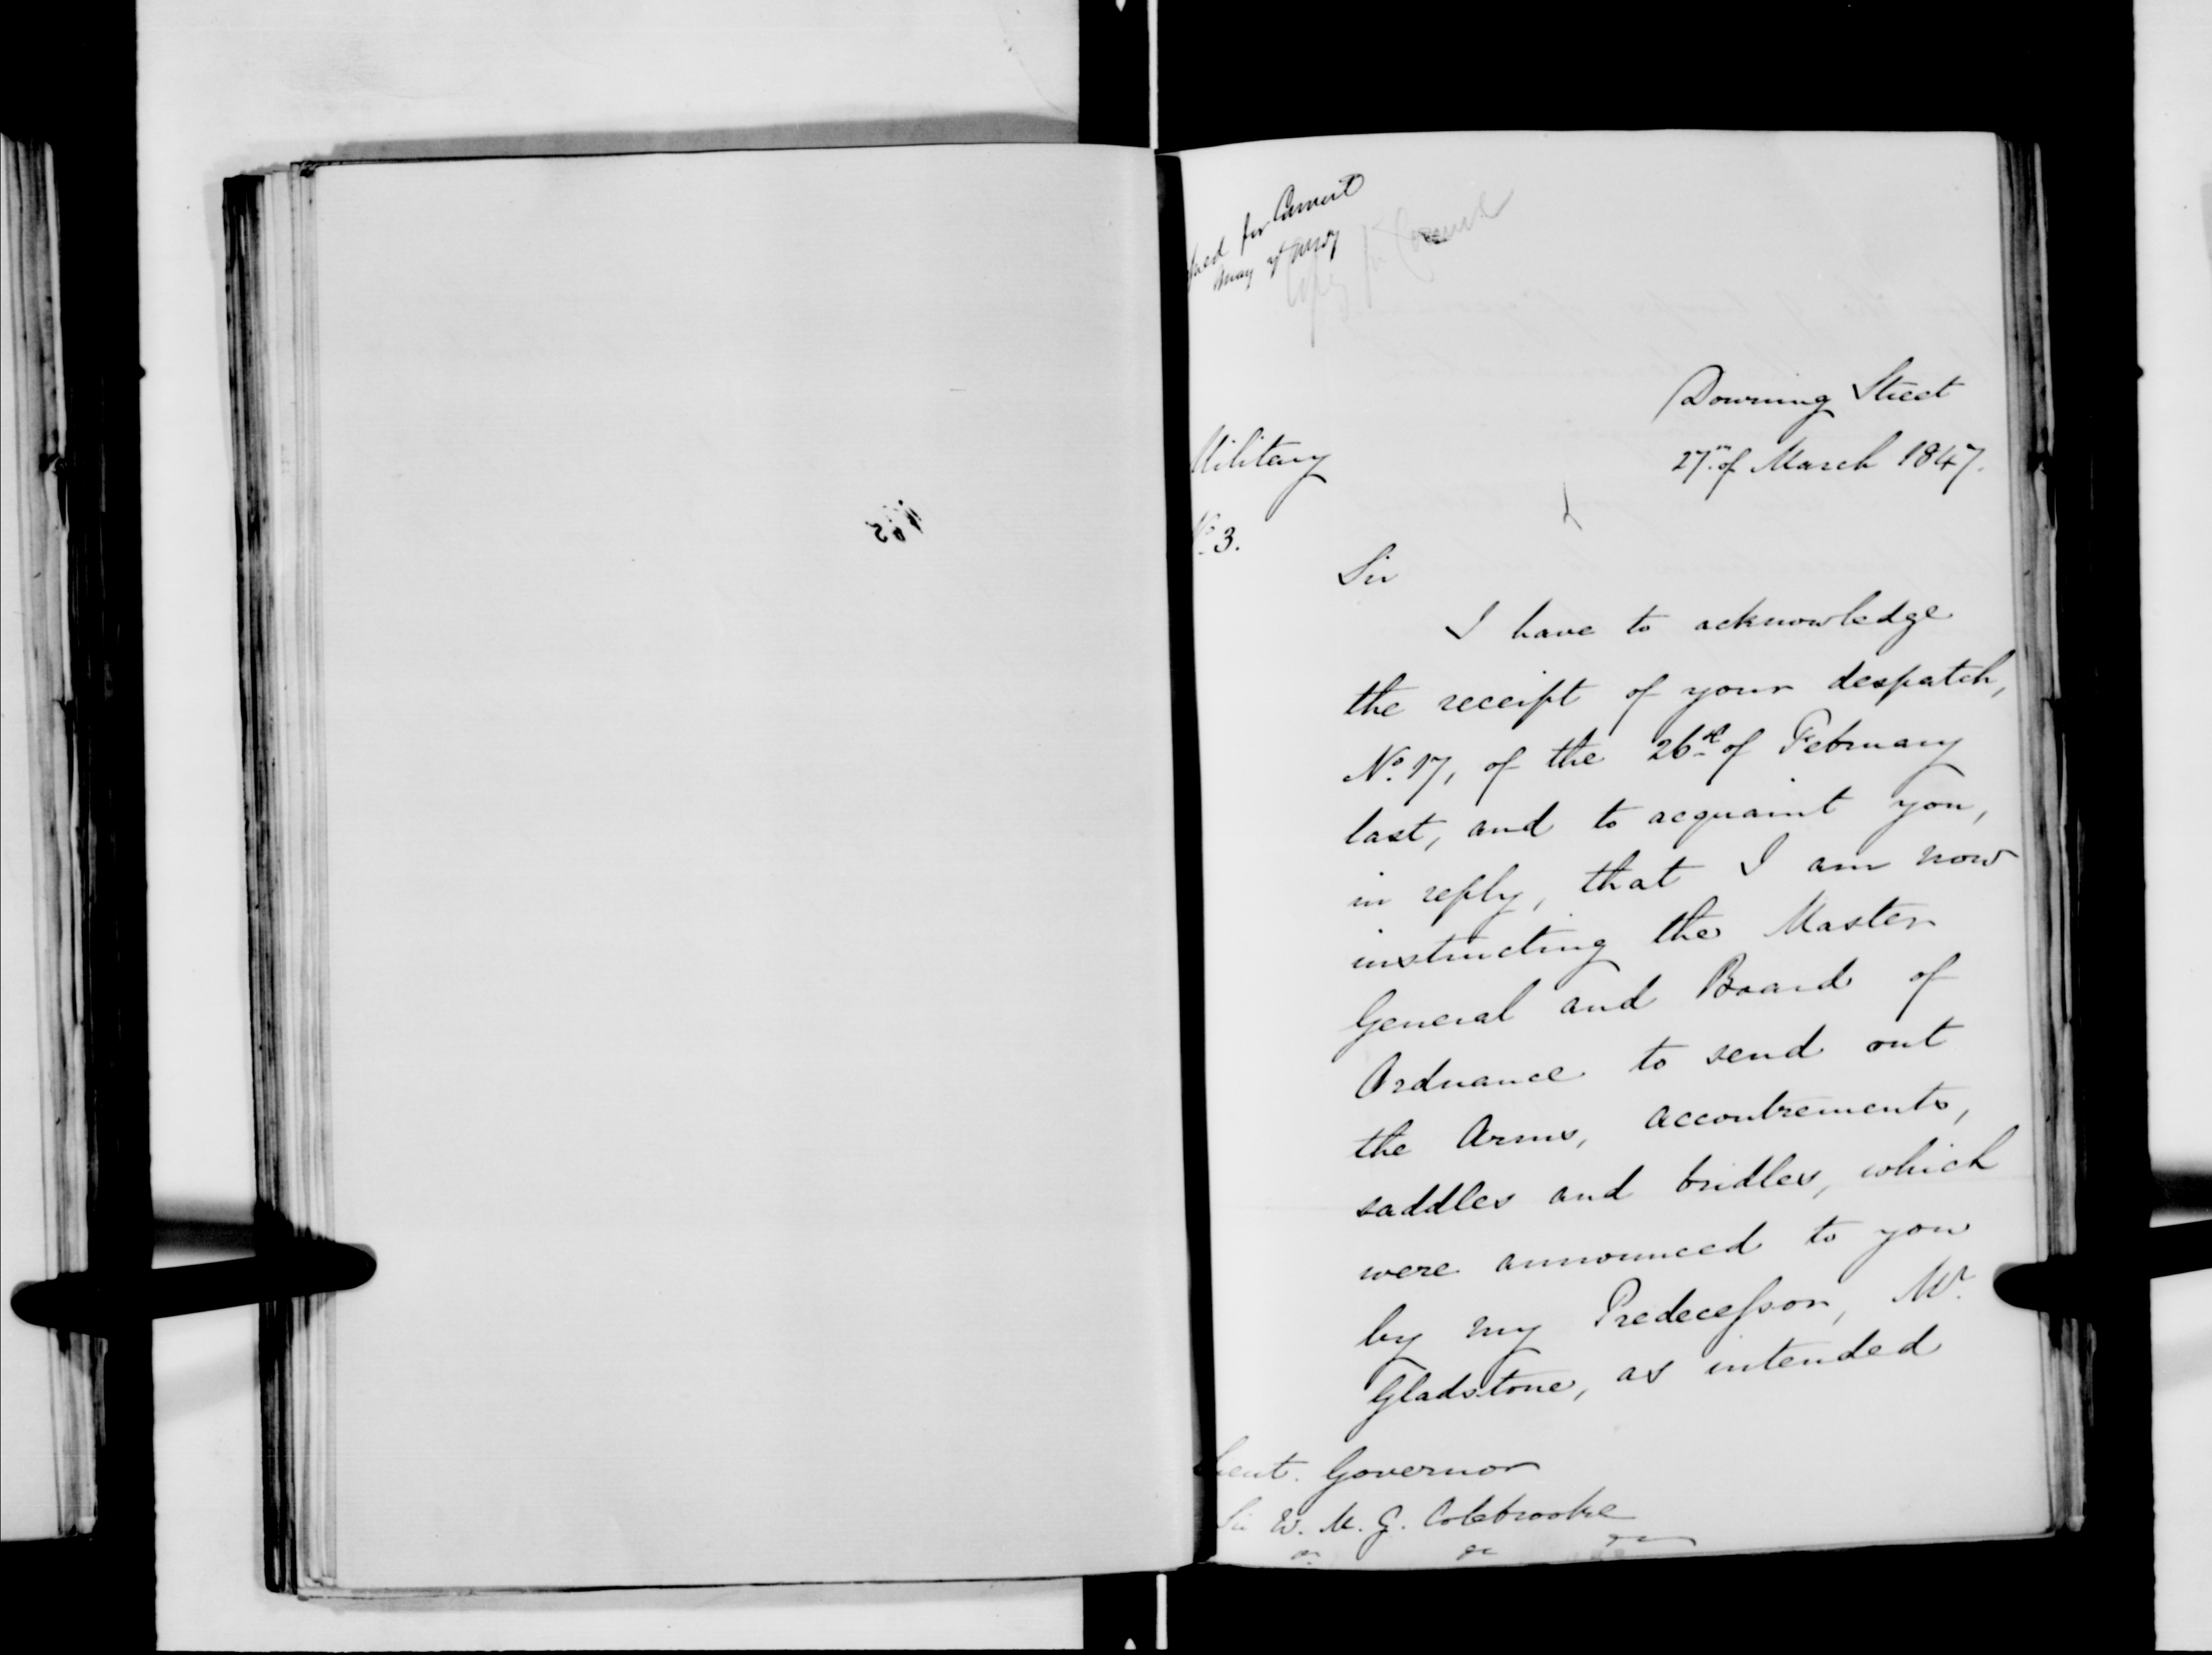 for
May
Copy for
Downing Street
Military
27th of March 1847.
No 3.
Sir
I have to acknowledge
the receipt of your despatch,
No. 17, of the 26th of February
last, and to acquaint you,
in reply, that I am now
instructing the Master
General and Board of
Ordnance to send out
the Arms, accoutrements,
saddles and bridles, which
were announced to you
by my Predecessor, Mr.
Gladstone, as intended
Lieut. Governor
Sir W. M. G. Colebrooke